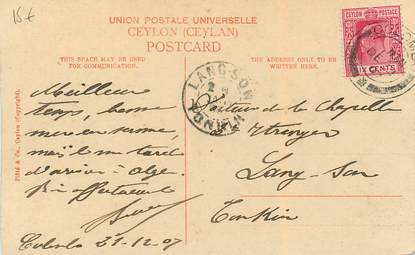 15 €
UNION POSTALE UNIVERSELLE
CEYLON (CEYLAN)
POSTCARD
THIS SPACE MAY BE USED
FOR COMMUNICATION.
THE ADDRESS ONLY TO BE
WRITTEN HERE.
CEYLON POSTAGE
SIX CENTS
COLOMBO
LANG-SON
TONKIN
Plâté & Co., Ceylon (Copyright).
Meilleur
temps, bonne
mer en somme,
mais il me tarde
d'arriver à
Bien affectueusement
Colombo 31-12-07
de la Chapelle
Etranger
Lang-Son
Tonkin